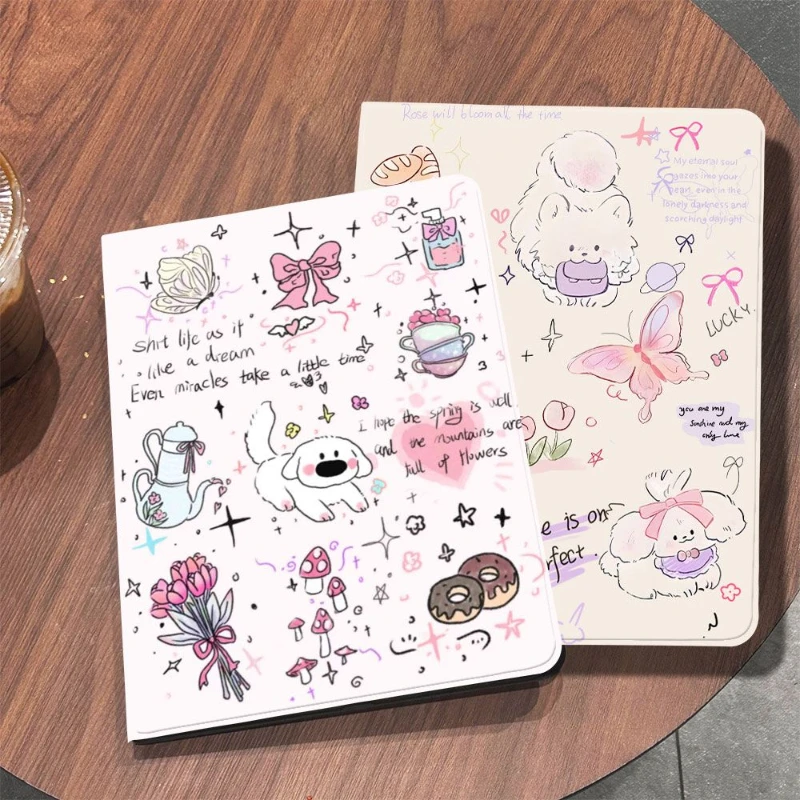 Shit life as if
like a dream
Even miracles take a little time
I hope the spring is well
and the mountains are
full of flowers
Rose will bloom all the time
My eternal soul
gazes into your
heart, even in the
lonely darkness and
scorching daylight
LUCKY.
you are my
sunshine and my
only love
e is on
rfect.